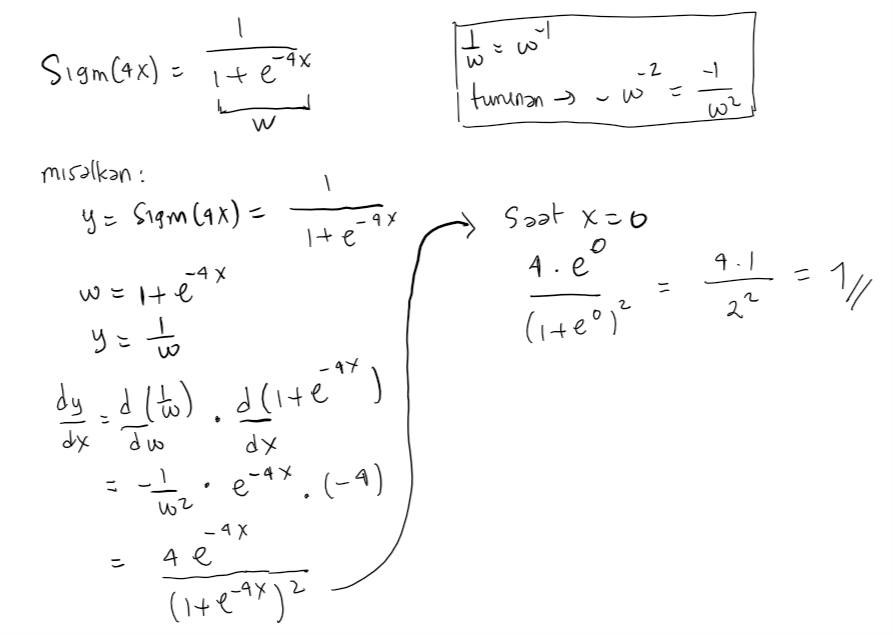 Sigm(4x) = 1 / (1 + e^{-4x})
w
1/w = w^{-1}
turunan → - w^{-2} = -1/w^2
misalkan:
y = Sigm(4x) = 1 / (1 + e^{-4x})
w = 1 + e^{-4x}
y = 1/w
dy/dx = d(1/w)/dw . d(1 + e^{-4x})/dx
= -1/w^2 . e^{-4x} . (-4)
= 4e^{-4x} / (1 + e^{-4x})^2
Saat x = 0
4 . e^0 / (1 + e^0)^2 = 4 . 1 / 2^2 = 1//